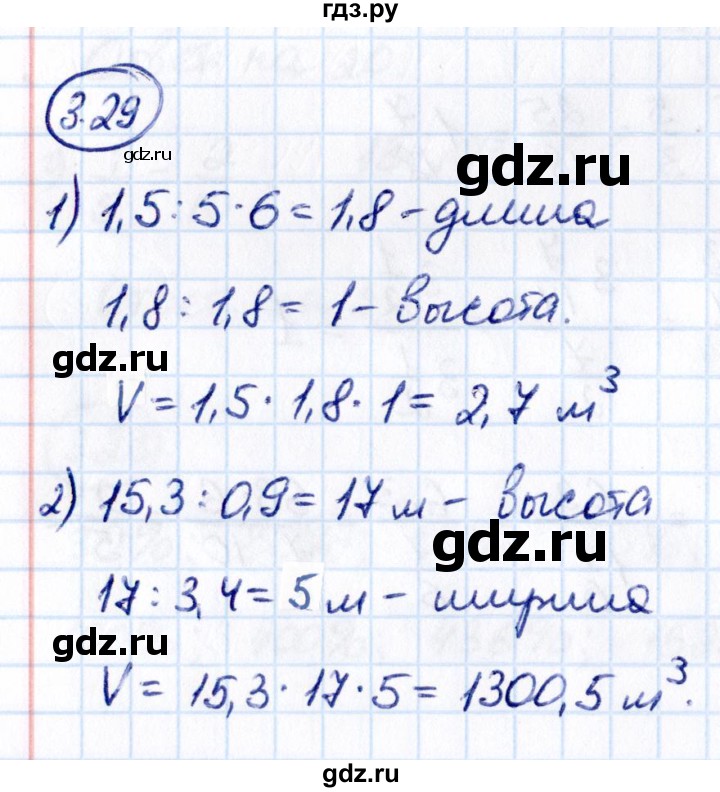 гдз.ру
3.29
gdz.ru
gdz.ru
1) 1,5 : 5 · 6 = 1,8 - длина
1,8 : 1,8 = 1 - высота.
gdz.ru
V = 1,5 · 1,8 · 1 = 2,7 м³
2) 15,3 : 0,9 = 17 м - высота
gdz.ru
17 : 3,4 = 5 м - ширина
gdz.ru
V = 15,3 · 17 · 5 = 1300,5 м³.
gdz.ru